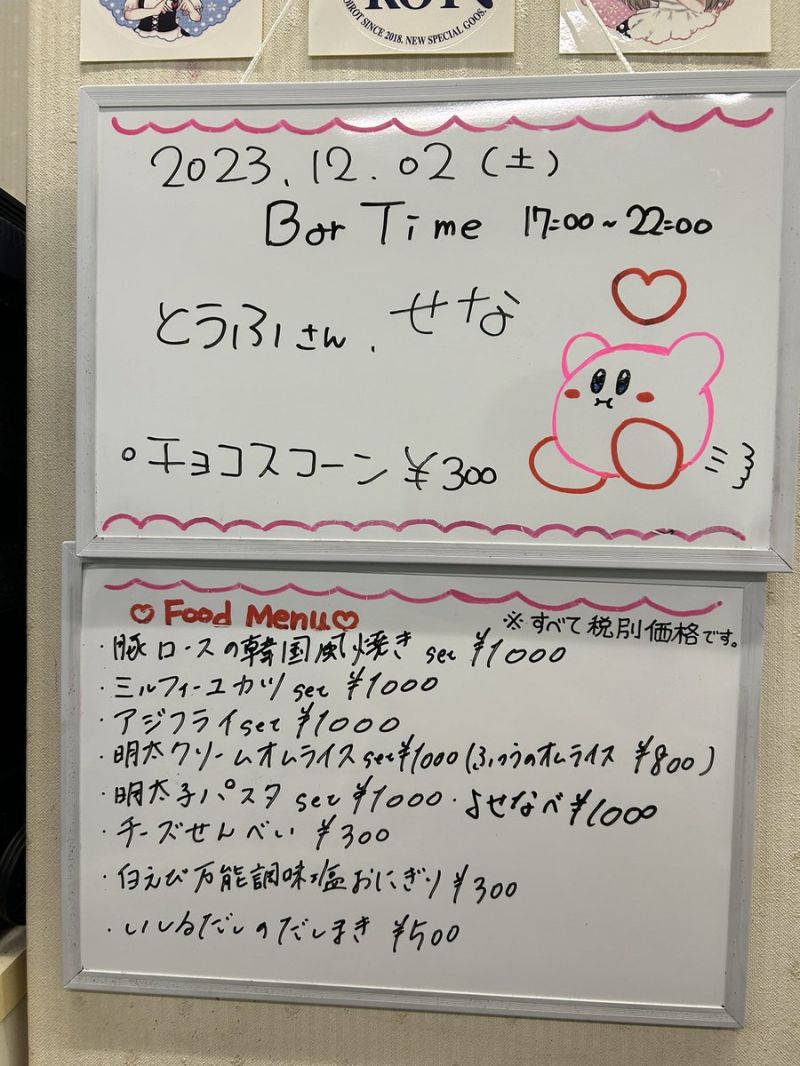 OIROT SINCE 2018. NEW SPECIAL GOOS.
2023.12.02(土)
Bar Time 17:00~22:00
とうふさん、せな
○チョコスコーン ¥300
♡Food Menu♡
※すべて税別価格です。
・豚ロースの韓国風焼き set ¥1000
・ミルフィーユカツ set ¥1000
・アジフライset ¥1000
・明太クリームオムライスset¥1000(ふつうのオムライス ¥800)
・明太子パスタ set ¥1000・よせなべ¥1000
・チーズせんべい ¥300
・白えび万能調味塩おにぎり¥300
・いしるだしのだしまき ¥500